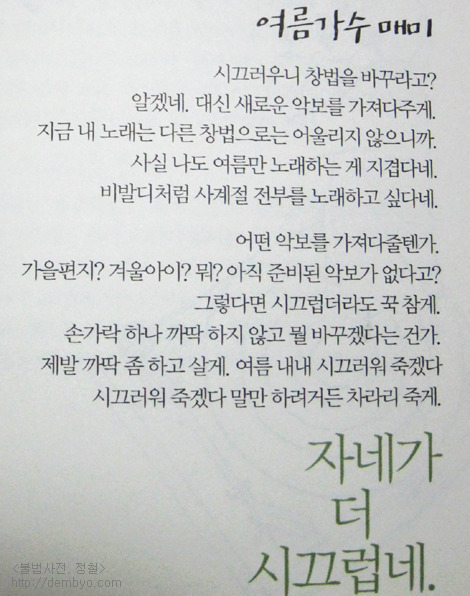 여름가수 매미
시끄러우니 창법을 바꾸라고?
알겠네. 대신 새로운 악보를 가져다주게.
지금 내 노래는 다른 창법으로는 어울리지 않으니까.
사실 나도 여름만 노래하는 게 지겹다네.
비발디처럼 사계절 전부를 노래하고 싶다네.
어떤 악보를 가져다줄텐가.
가을편지? 겨울아이? 뭐? 아직 준비된 악보가 없다고?
그렇다면 시끄럽더라도 꾹 참게.
손가락 하나 까딱 하지 않고 뭘 바꾸겠다는 건가.
제발 까딱 좀 하고 살게. 여름 내내 시끄러워 죽겠다
시끄러워 죽겠다 말만 하려거든 차라리 죽게.
자네가
더
시끄럽네.
<불법사전. 정철>
http://dembyo.com